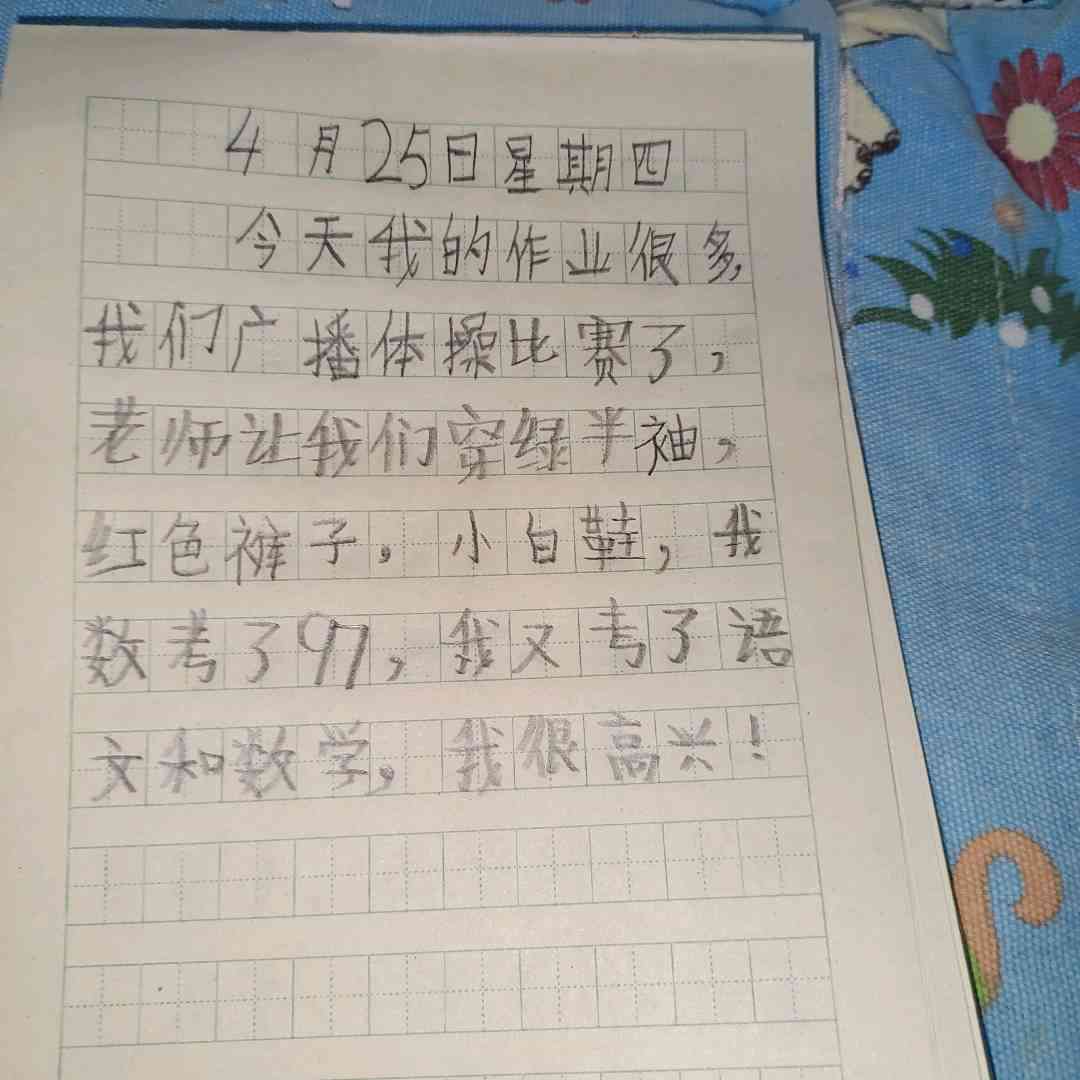 4月25日星期四
今天我的作业很多,
我们广播体操比赛了,
老师让我们穿绿半袖,
红色裤子,小白鞋,我
数考了97,我又考了语
文和数学,我很高兴!